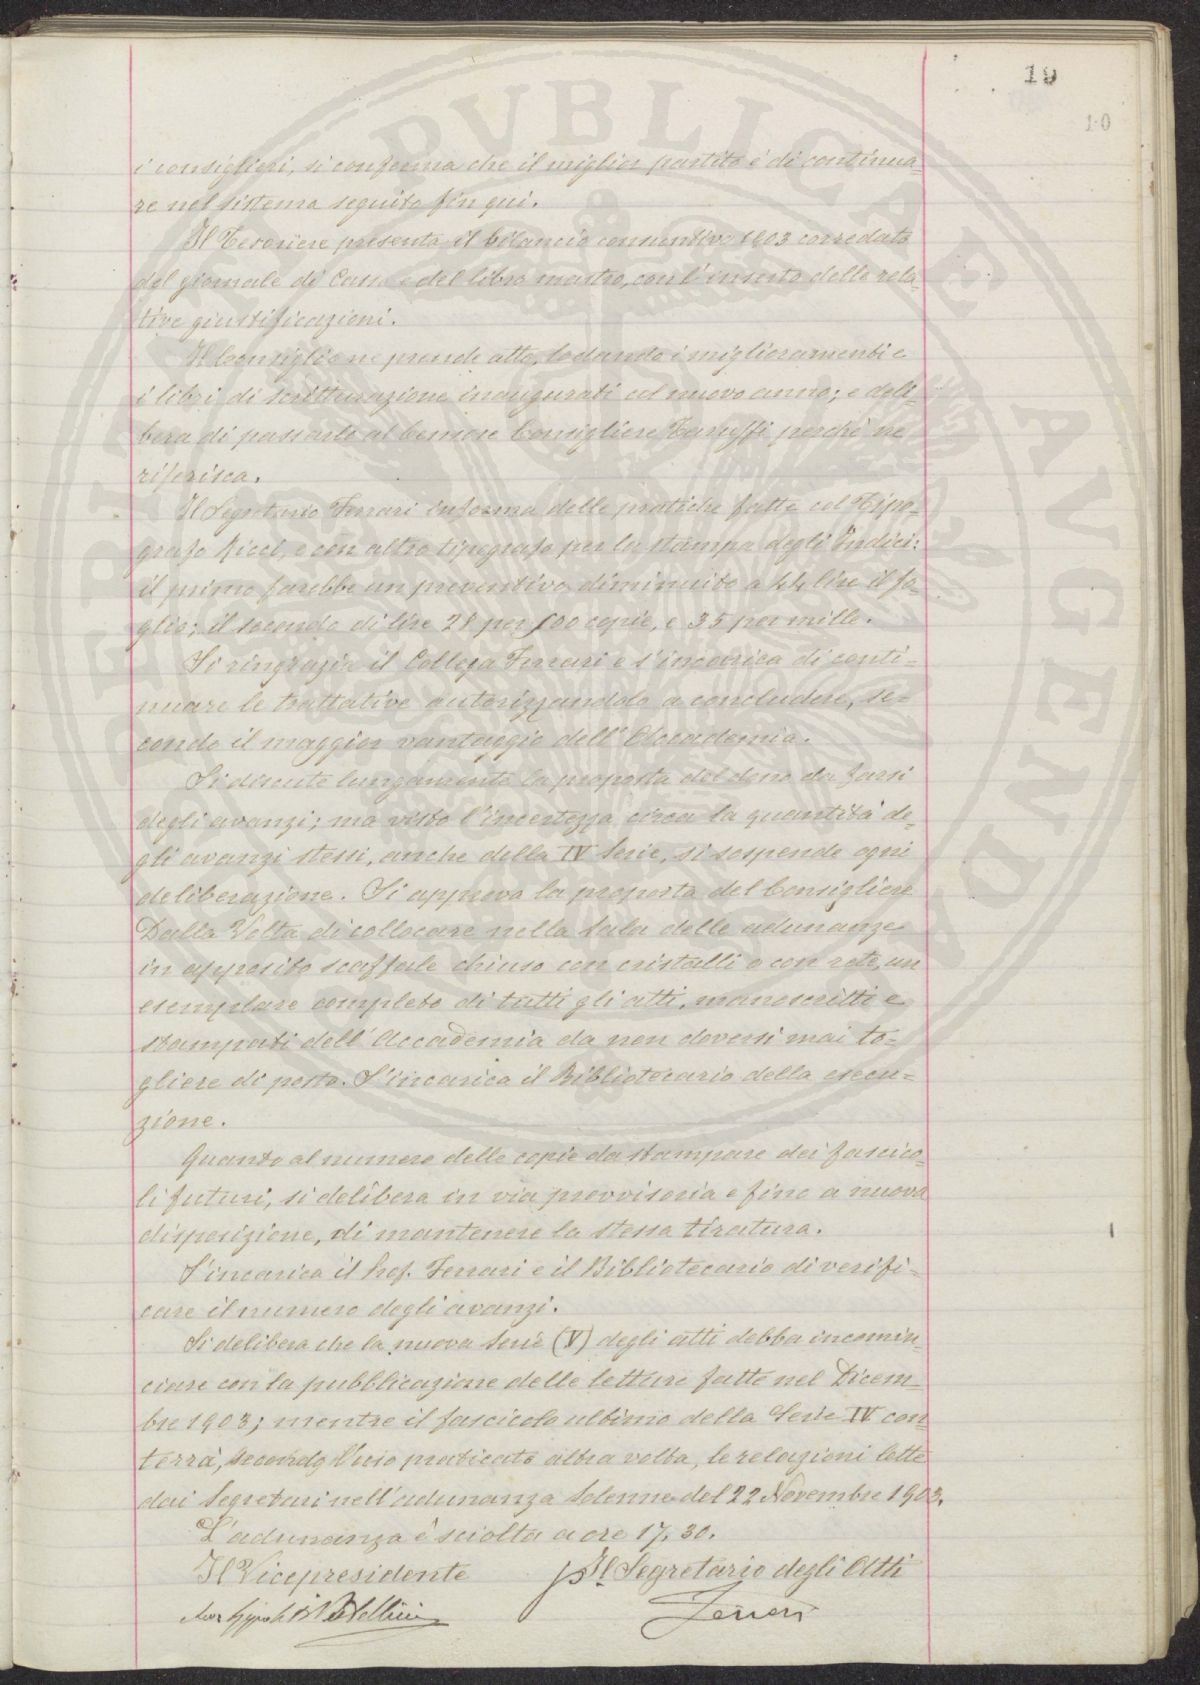 19
10
i consiglieri, si conferma che il miglior partito è di continua-
re nel sistema seguito fin qui.
Il Tesoriere presenta il bilancio consuntivo 1903 corredato
del giornale di Cassa e del libro mastro, con l'inserto delle rela-
tive giustificazioni.
Il Consiglio ne prende atto, lodando i miglioramenti e
i libri di scritturazione inaugurati col nuovo anno; e deli-
bera di passarlo al Censore Consigliere Taruffi perchè ne
riferisca.
Il Segretario Ferrari informa delle pratiche fatte col Tipo-
grafo Ricci, e con altro tipografo per la stampa degli Indici:
il primo farebbe un preventivo diminuito a 44 lire il fo-
glio; il secondo di lire 28 per 500 copie, e 35 per mille.
Si ringrazia il Collega Ferrari e s'incarica di conti-
nuare le trattative autorizzandolo a concludere, se-
condo il maggior vantaggio dell'Accademia.
Si discute lungamente la proposta del dono da farsi
degli avanzi; ma visto l'incertezza circa la quantità de-
gli avanzi stessi, anche della IV Serie, si sospende ogni
deliberazione. Si approva la proposta del Consigliere
Dalla Volta di collocare nella Sala delle adunanze
in apposito scaffale chiuso con cristalli o con rete, un
esemplare completo di tutti gli atti, manoscritti e
stampati dell'Accademia da non doversi mai to-
gliere di posto. S'incarica il Bibliotecario della esecu-
zione.
Quanto al numero delle copie da stampare dei fascico-
li futuri, si delibera in via provvisoria e fino a nuova
disposizione, di mantenere la stessa tiratura.
S'incarica il Prof. Ferrari e il Bibliotecario di verifi-
care il numero degli avanzi.
Si delibera che la nuova Serie (V) degli atti debba incomin-
ciare con la pubblicazione delle letture fatte nel Dicem-
bre 1903; mentre il fascicolo ultimo della Serie IV con-
terrà, secondo l'uso praticato altra volta, le relazioni lette
dai Segretari nell'adunanza Solenne del 22 Novembre 1903.
L'adunanza è sciolta a ore 17,30.
Il Vicepresidente p. Il Segretario degli Atti
Ferrari
PUBLICAE AUGENDA